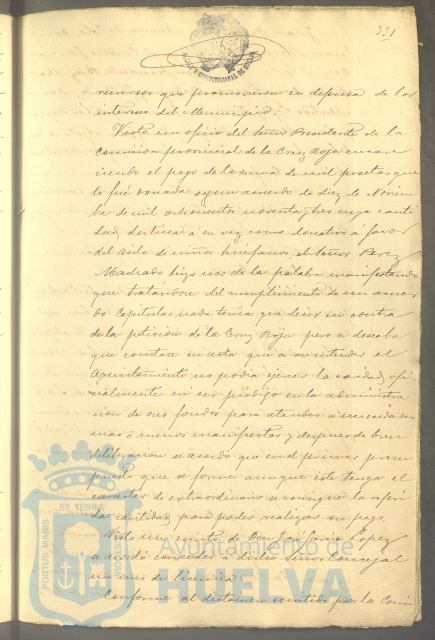 331
recursos que promovieron en defensa de los
intereses del Municipio.
Visto un oficio del Señor Presidente de la
Comision provincial de la Cruz Roja encare
ciendo el pago de la suma de mil pesetas que
le fué donada segun acuerdo de diez de Noviem
bre de mil ochocientos noventa y tres cuya canti
dad destina á su vez como donativo á favor
del Asilo de niños huérfanos, el Señor Perez
Madrado hizo uso de la palabra manifestando
que tratándose del cumplimiento de un acuer
do Capitular nada tenia que decir en contra
de la peticion de la Cruz Roja pero si deseaba
que constase en acta que á su entender el
Ayuntamiento no podia ejercer la caridad ofi
cialmente ni ser pródigo en la administra
cion de sus fondos para atender á necesidades
mas ó menos manifiestas y despues de breve
deliberacion se acordó que en el primer presu
puesto que se forme aunque este tenga el
caracter de extraordinario se consigne la referi
da cantidad para poder realizar su pago.
Visto un escrito de Don José Maria Lopez
se acordó conceder á dicho Señor Concejal
un mes de licencia.
Conforme al dictamen emitido por la Comi
PORTUS MARIS
ET TERRAE
CUSTODIA
Ayuntamiento de
HUELVA